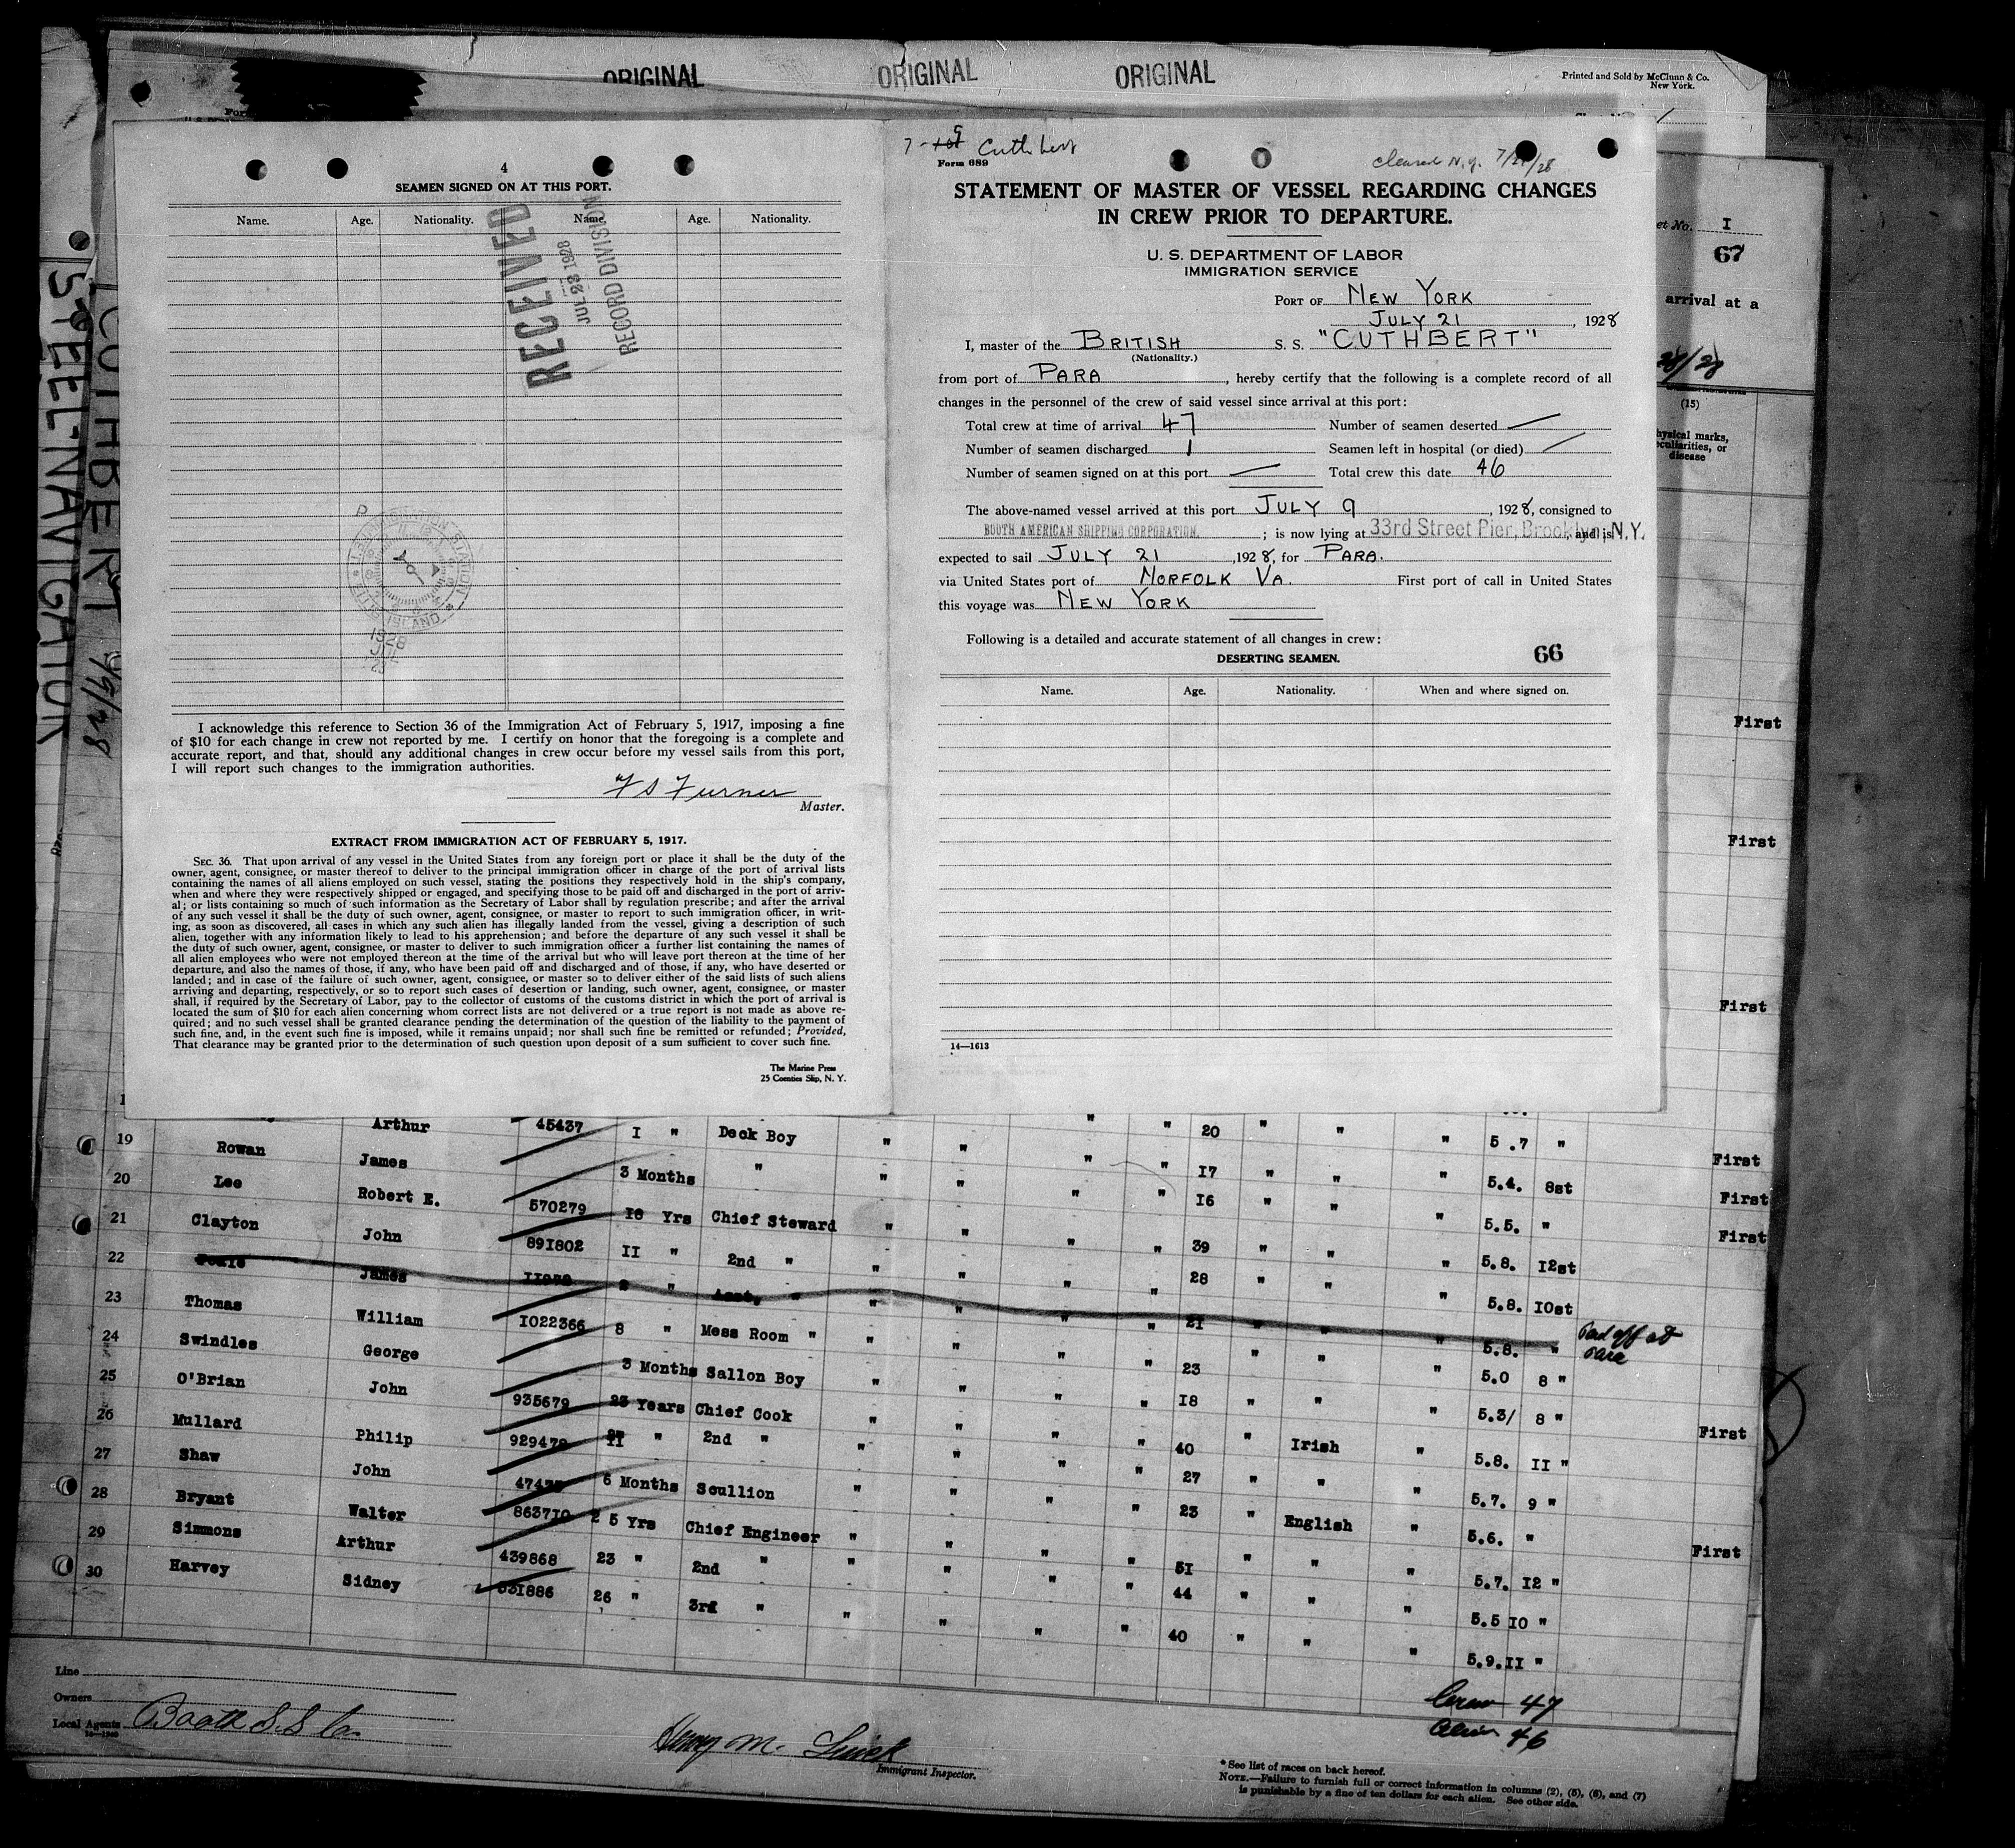 ORIGINAL
ORIGINAL
ORIGINAL
Printed and Sold by McClunn & Co.
New York.
4
SEAMEN SIGNED ON AT THIS PORT.
Name. Age. Nationality. Name. Age. Nationality.
RECEIVED
JUL 23 1928
RECORD DIVISION
IMMIGRATION STATION
ELLIS ISLAND
1928
I acknowledge this reference to Section 36 of the Immigration Act of February 5, 1917, imposing a fine
of $10 for each change in crew not reported by me. I certify on honor that the foregoing is a complete and
accurate report, and that, should any additional changes in crew occur before my vessel sails from this port,
I will report such changes to the immigration authorities.
Master.
EXTRACT FROM IMMIGRATION ACT OF FEBRUARY 5, 1917.
SEC. 36. That upon arrival of any vessel in the United States from any foreign port or place it shall be the duty of the
owner, agent, consignee, or master thereof to deliver to the principal immigration officer in charge of the port of arrival lists
containing the names of all aliens employed on such vessel, stating the positions they respectively hold in the ship's company,
when and where they were respectively shipped or engaged, and specifying those to be paid off and discharged in the port of arriv-
al; or lists containing so much of such information as the Secretary of Labor shall by regulation prescribe; and after the arrival
of any such vessel it shall be the duty of such owner, agent, consignee, or master to report to such immigration officer, in writ-
ing, as soon as discovered, all cases in which any such alien has illegally landed from the vessel, giving a description of such
alien, together with any information likely to lead to his apprehension; and before the departure of any such vessel it shall be
the duty of such owner, agent, consignee, or master to deliver to such immigration officer a further list containing the names of
all alien employees who were not employed thereon at the time of the arrival but who will leave port thereon at the time of her
departure, and also the names of those, if any, who have been paid off and discharged and of those, if any, who have deserted or
landed; and in case of the failure of such owner, agent, consignee, or master so to deliver either of the said lists of such aliens
arriving and departing, respectively, or so to report such cases of desertion or landing, such owner, agent, consignee, or master
shall, if required by the Secretary of Labor, pay to the collector of customs of the customs district in which the port of arrival is
located the sum of $10 for each alien concerning whom correct lists are not delivered or a true report is not made as above re-
quired; and no such vessel shall be granted clearance pending the determination of the question of the liability to the payment of
such fine, and, in the event such fine is imposed, while it remains unpaid; nor shall such fine be remitted or refunded; Provided,
That clearance may be granted prior to the determination of such question upon deposit of a sum sufficient to cover such fine.
The Marine Press
25 Coenties Slip, N. Y.
Cuthbert
Form 689
cleared N.Y.
STATEMENT OF MASTER OF VESSEL REGARDING CHANGES
IN CREW PRIOR TO DEPARTURE.
U. S. DEPARTMENT OF LABOR
IMMIGRATION SERVICE
PORT OF NEW YORK
JULY 21, 1928
I, master of the BRITISH S. S. "CUTHBERT"
(Nationality.)
from port of PARA, hereby certify that the following is a complete record of all
changes in the personnel of the crew of said vessel since arrival at this port:
Total crew at time of arrival 47 Number of seamen deserted —
Number of seamen discharged 1 Seamen left in hospital (or died) —
Number of seamen signed on at this port — Total crew this date 46
The above-named vessel arrived at this port JULY 9, 1928, consigned to
BOOTH AMERICAN SHIPPING CORPORATION. ; is now lying at 33rd Street Pier, Brooklyn, N.Y. and is
expected to sail JULY 21, 1928, for PARA.
via United States port of NORFOLK VA. First port of call in United States
this voyage was NEW YORK
Following is a detailed and accurate statement of all changes in crew:
DESERTING SEAMEN. 66
Name. Age. Nationality. When and where signed on.
14—1613
et No. I
67
arrival at a
(15)
hysical marks,
eculiarities, or
disease
First
First
First
STEEL NAVIGATION
CUTHBERT 7/9/28
Arthur 45437 I " Deck Boy " " " " 20 " " " 5.7 " First
19 Rowan James 3 Months " " " " " 17 " " " 5.4. 8st First
20 Lee Robert E. 570279 18 Yrs Chief Steward " " " " 16 " " " 5.5. " First
21 Clayton John 891802 II " 2nd " " " " " 39 " " " 5.8. 12st
22 James " Asst. " " " " " 28 " " " 5.8. 10st
23 Thomas William 1022366 8 " Mess Room " " " " " 21 " " " 5.8. " Paid off at Para
24 Swindles George 3 Months Sallon Boy " " " " 23 " " " 5.0 8 "
25 O'Brian John 935679 23 Years Chief Cook " " " " 18 " " " 5.3/ 8 " First
26 Mullard Philip 929479 II " 2nd " " " " " 40 " Irish " 5.8. II "
27 Shaw John 6 Months Scullion " " " " 27 " " " 5.7. 9 "
28 Bryant Walter 863710 2 5 Yrs Chief Engineer " " " " 23 " English " 5.6. " First
29 Simmons Arthur 439868 23 " 2nd " " " " " 51 " " " 5.7. 12 "
30 Harvey Sidney 831886 26 " 3rd " " " " " 44 " " " 5.5 10 "
40 " " " 5.9. II "
Line
Owners
Local Agents Booth S.S. Co.
Crew 47
Alien 46
Henry M.
Immigrant Inspector.
* See list of races on back hereof.
NOTE.—Failure to furnish full or correct information in columns (2), (5), (6), and (7)
is punishable by a fine of ten dollars for each alien. See other side.